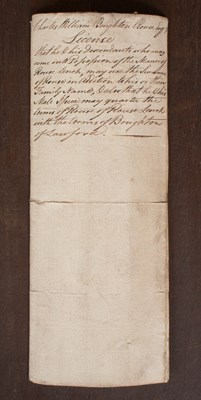 Charles William Boughton Clerk Esq
License
that he & his Descendants who may
come into Possession of the Manor of
Rouse Lench, may use the Surname
of Rouse in addition to his or their
Family Name, & also that he & his
Male Issue may quarter the
Arms of Rouse of Rouse Lench
with the Arms of Boughton
of Lawford.